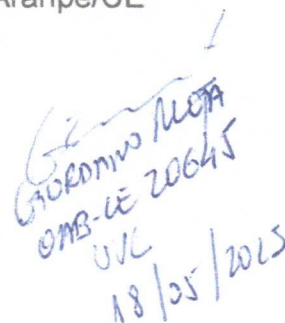 Araripe/CE
GIORDANO MOTA
OAB-CE 20645
18/05/2015